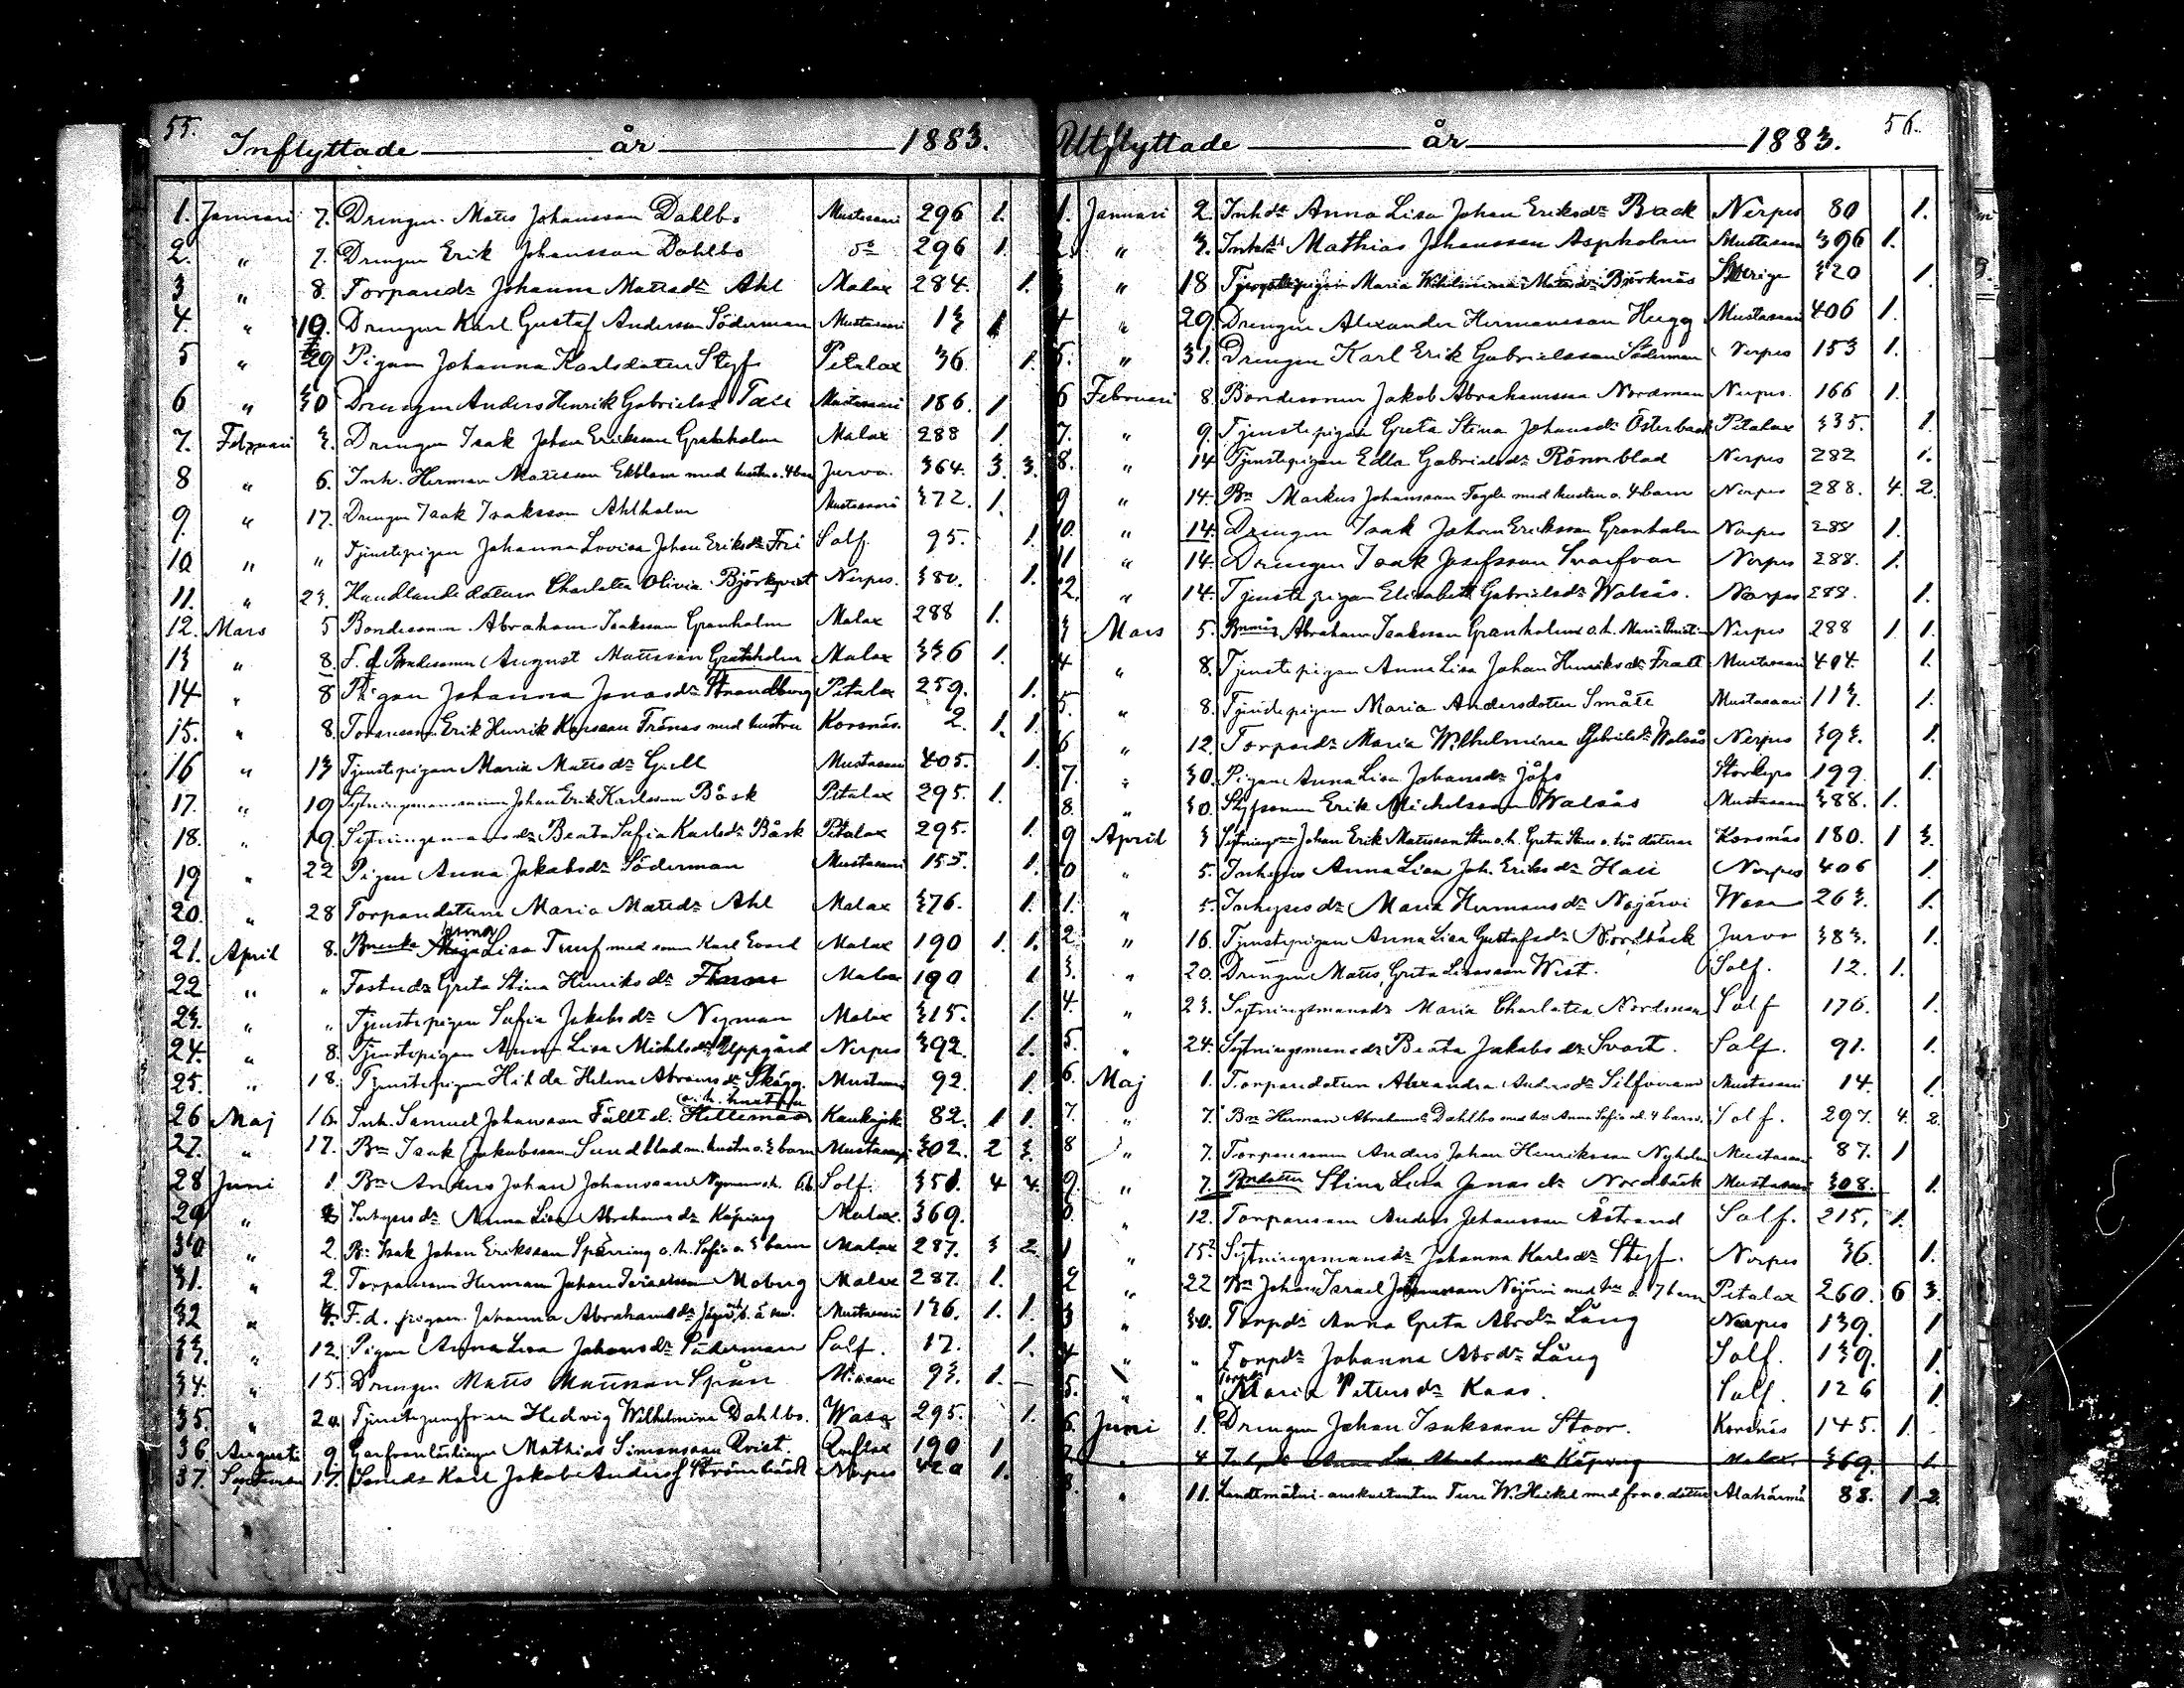 55.
Inflyttade år 1883.
1. Januari 7. Drengen Matts Johansson Dahlbo Mustasaari 296 1.
2. " 7. Drengen Erik Johansson Dahlbo do 296 1.
3 " 8. Torpareds Johanna Mattsdr Ahl Malax 284. 1.
4. " 19. Drengen Karl Gustaf Andersson Söderman Mustasaari 13 1
5 " 29 Pigan Johanna Karlsdotter Styf Petalax 36. 1.
6 " 30 Drengen Anders Henrik Gabrielss Mustasaari 186. 1
7. Februari 3. Drengen Isak Johan Eriksson Granholm Malax 288 1.
8 " 6. Inh. Herman Mattsson Ekblom med hustru o. 4 barn Jurva. 364. 3. 3.
9. " 17. Drengen Isak Isaksson Ahlholm Mustasaari 372. 1.
10 " " Tjenstepigan Johanna Lovisa Johan Eriksdr Fri Solf. 95. 1.
11. " 23. Handlande dottern Charlotta Olivia Björkqvist Nerpes. 380. 1.
12. Mars 5 Bondesonen Abraham Isaksson Granholm Malax 288 1.
13 " 8. F. d. Bondesonen August Mattsson Granholm Malax 336 1.
14 " 8 Pigan Johanna Jonasdr Strandberg Petalax 259. 1.
15. " 8. Erik Henrik Karlsson Frånas med hustru Korsnäs. 2. 1. 1.
16 " 13 Tjenstepigan Maria Mattsdr Grill Mustasaari 405. 1.
17. " 19 Sytningsmanssonen Johan Erik Karlsson Båsk Petalax 295. 1.
18. " 19. Sytningsmansdr Beata Sofia Karlsdr Båsk Petalax 295. 1.
19 " 22 Pigan Anna Jakobsdr Söderman Mustasaari 155. 1.
20. " 28 Torparedottern Maria Mattsdr Ahl Malax 376. 1.
21. April 8. Lisa med sonen Karl Evard Malax 190 1. 1.
22 " " Fosterdr Greta Stina Henriksdr Malax 190 1
23. " " Tjenstepigan Sofia Jakobsdr Nyman Malax 315. 1.
24. " 8. Tjenstepigan Anna Lisa Michelsdr Uppgård Nerpes 392. 1.
25. " 18. Tjenstepigan Hilda Helena Abramsdr Skägg. Mustasaari 92. 1.
26 Maj 16. Inh. Samuel Johansson Fällt el. Hellman Kaukajoki 82. 1 1.
27. " 17. Bn Isak Jakobsson Sundblad m. hustru o. 3 barn Mustasaari 302. 2 3.
28 Juni 1. Bn Anders Johan Johansson Nyman o. h. 6 b. Solf. 351. 4 4.
29 " 2 Inhyses dr Anna Lisa Abrahamsdr Köping Malax. 369.
30 " 2. Bn Isak Johan Eriksson Sperring o. h. Sofia o. 3 barn Malax 287. 3 2.
31. " 2. Torparesonen Herman Johan Israelsson Moberg Malax 287. 1.
32 " 4. F. d. pigan Johanna Abrahamsdr Mustasaari 126. 1. 1.
33. " 12. Pigan Anna Lisa Johansdr Söderman Solf. 17. 1.
34. " 15. Drengen Matts Mattsson Spån 93. 1.
35. " 20. Tjenstejungfrun Hedvig Wilhelmina Dahlbo. Wasa 295. 1.
36 Augusti 9 Garfvarelärlingen Mathias Simonsson Qvist. Qveflax 190 1
37. September 17. Karl Jakob Anders Strömbäck Nerpes 420 1.
56.
Utflyttade år 1883.
1. Januari 2. Inhdr Anna Lisa Johan Eriksdr Back Nerpes 80 1.
2. " 3. Mathias Johansson Aspholm Mustasaari 396 1.
3 " 18 Tjenstepigan Maria Wilhelmina Mattsdr Björknäs Sverige 320 1.
4 " 29. Drengen Alexander Hermansson Hugg Mustasaari 406 1.
5. " 31. Drengen Karl Erik Gabrielsson Söderman Nerpes 153 1.
6 Februari 8. Bondesonen Jakob Abrahamsson Nordman Nerpes. 166 1.
7. " 9. Tjenstepigan Greta Stina Johansdr Österback Petalax 335. 1.
8. " 14 Tjenstepigan Edla Gabrielsdr Rönnblad Nerpes 282 1.
9 " 14. Bn Markus Johansson Tegla med hustru o. 4 barn Nerpes 288. 4. 2.
10. " 14. Drengen Isak Johan Eriksson Granholm Nerpes 288 1.
11 " 14. Drengen Isak Josefsson Svarfvar Nerpes 288. 1.
2. " 14. Tjenstepigan Elisabeth Gabrielsdr Walsås. Nerpes 288. 1.
3 Mars 5. Abraham Isaksson Granholm o. h. Maria Nerpes 288 1 1.
4 " 8. Tjenstepigan Anna Lisa Johan Henriksdr Fratt Mustasaari 404. 1.
5. " 8. Tjenstepigan Maria Andersdotter Smått Mustasaari 113. 1.
6 " 12. Torparedr Maria Wilhelmina Gabrielsdr Walsås Nerpes 393. 1.
7. " 30. Pigan Anna Lisa Johansdr Jåfs Storkyro 199. 1.
8. " 30. Erik Michelsson Walsås Mustasaari 388. 1.
9 April 3 Johan Erik Mattsson o. h. Greta Stina o. två döttrar Korsnäs 180. 1 3.
0 " 5. Inhyses Anna Lisa Joh. Eriksdr Nerpes 406 1.
1. " 5. Inhysesdr Maria Hermansdr Nojärvi Wasa 263. 1.
2. " 16. Tjenstepigan Anna Lisa Gustafsdr Nordbäck Jurva 383. 1.
3. " 20. Drengen Matts, Greta Lisasson Wist. Solf. 12. 1.
4. " 23. Sytningsmansdr Maria Charlotta Nordman Solf 176. 1.
5. " 24. Sytningsmansdr Beata Jakobsdr Svart. Solf. 91. 1.
6. Maj 1. Torparedottern Alexandra Andersdr Silfver Mustasaari 14. 1.
7. " 7. Bn Herman Abrahamss Dahlbo med hu Anna Sofia o. 4 barn. Solf. 297. 4. 2.
8 " 7. Torparesonen Anders Johan Henriksson Nyholm Mustasaari 87. 1
9. " 7. Stina Lisa Jonasdr Nordbäck Mustasaari 308. 1.
0. " 12. Torparesonen Anders Johansson Åstrand Solf. 215. 1.
1 " 15. Sytningsmansdr Johanna Karlsdr Styf. Nerpes 36. 1.
2 " 22 Bn Johan Israel Nojärvi med hu o. 7 barn Petalax 260. 6 3.
3 " 30. Torpdr Anna Greta Abrdr Lång Nerpes 139. 1
4 " " Torpdr Johanna Abrdr Lång Solf. 139. 1.
5. " " Torpdr Maria Petersdr Kaas. Solf. 126 1
6. Juni 1. Drengen Johan Isaksson Stoor. Korsnäs 145. 1.
7. " 4. Anna Lisa Abrahamsdr Köping Malax. 369. 1.
8. " 11. Landtmäteri-auskultanten Ture W. Heikel med fru o. dotter Alahärmä 88. 1 2.